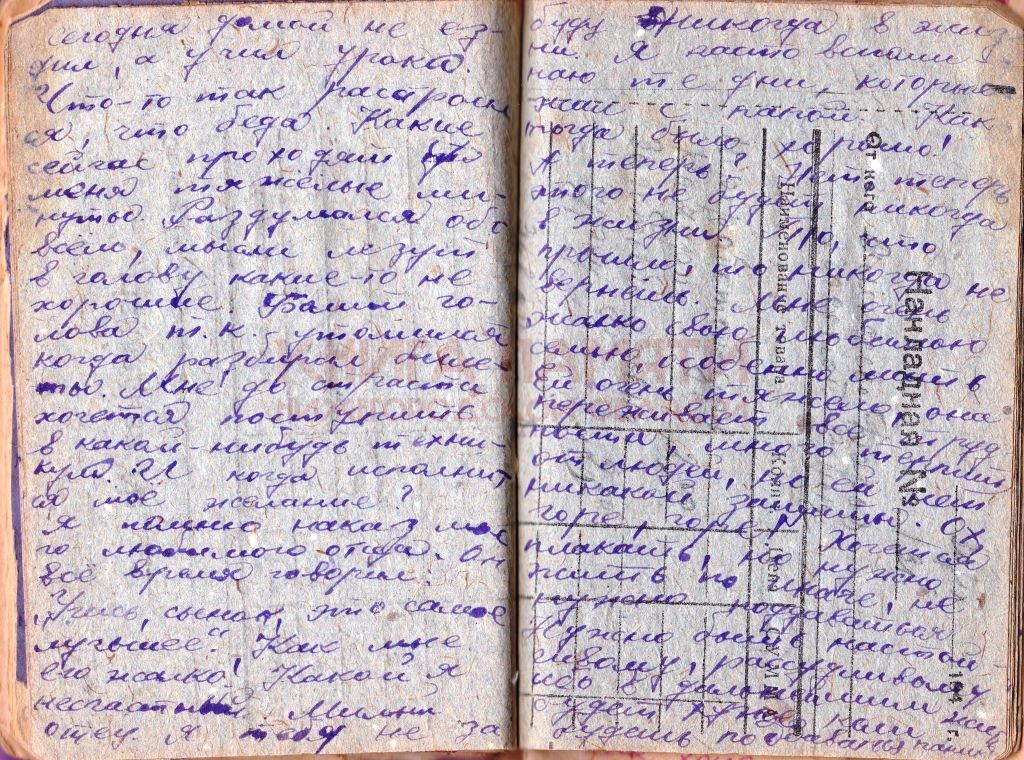 сегодня домой не ез-
дил, а учил уроки.
Что-то так расстроил
ся, что беда. Какие
сейчас проходят для
меня тяжёлые ми-
нуты. Раздумался обо
всём, мысли лезут
в голову какие-то не
хорошие. Болит го-
лова т.к. утомился
когда разбирал биле-
ты. Мне до страсти
хочется поступить
в какой-нибудь техни-
кум. И когда исполнит
ся моё желание?
Я помню наказ мое
го любимого отца. Он
всё время говорил:
"Учись сынок, это самое
лучшее". Как мне
его жалко! Какой я
несчастный. Милый
отец я не за
буду никогда в жиз
ни. Я часто вспоми-
наю те дни, которые
жил с папой. Как
тогда было хорошо!
А теперь? Нет теперь
этого не будет никогда
в жизни. что
прошло, то никогда не
вернёшь. Мне очень
жалко свою любимую
семью, особенно мать
ей очень тяжело, она
переживает все труд
ности, много терпит
от людей, но ей нет
никакой защиты. Ох
горе, горе! Хочется
плакать, но нужно
жить по иначе, не
нужно поддаваться
Нужно быть настой-
чивому, рассудливому
ибо в дальнейшем
будет хуже, коли
будешь поддаваться
Накладная №
194 г.
От кого
Наименование товара
Цена
Сумма